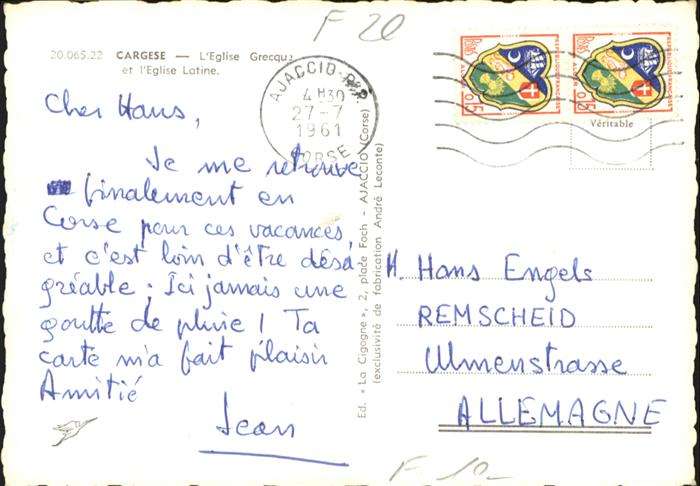 F 20
20.065.22 CARGESE — L'Eglise Grecque
et l'Eglise Latine.
AJACCIO
4 H30
27-7
1961
CORSE
0,15
0,15
Véritable
Cher Hans,
Je me retrouve
finalement en
Corse pour ces vacances,
et c'est loin d'être désa
gréable ; Ici jamais une
goutte de pluie ! Ta
carte m'a fait plaisir
Amitié
Jean
Ed. « La Cigogne », 2, place Foch - AJACCIO (Corse)
(exclusivité de fabrication André Leconte)
M. Hans Engels
REMSCHEID
Ulmenstrasse
ALLEMAGNE